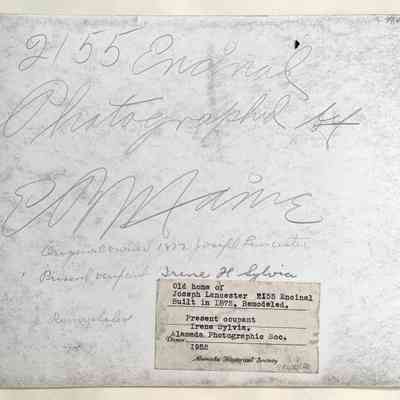 2155 Encinal
Photographed by
Original owner 1872 Joseph Lancaster
Present occupant Irene H Sylvia
Remodeled
Old home of
Joseph Lancaster 2155 Encinal
Built in 1872, Remodeled.
Present occupant
Irene Sylvia,
Alameda Photographic Soc.
Donor
1952
Alameda Historical Society